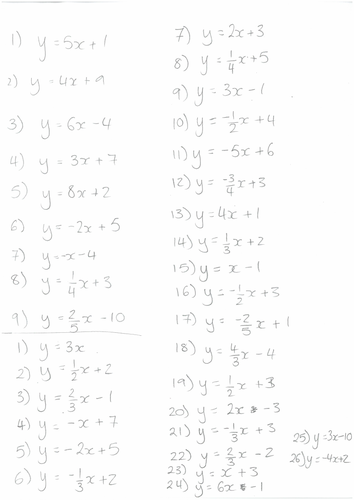 1) y = 5x + 1
2) y = 4x + 9
3) y = 6x - 4
4) y = 3x + 7
5) y = 8x + 2
6) y = -2x + 5
7) y = -x - 4
8) y = 1/4 x + 3
9) y = 2/5 x - 10
1) y = 3x
2) y = 1/2 x + 2
3) y = 2/3 x - 1
4) y = -x + 7
5) y = -2x + 5
6) y = -1/3 x + 2
7) y = 2x + 3
8) y = 1/4 x + 5
9) y = 3x - 1
10) y = -1/2 x + 4
11) y = -5x + 6
12) y = -3/4 x + 3
13) y = 4x + 1
14) y = 1/3 x + 2
15) y = x - 1
16) y = -1/2 x + 3
17) y = -2/5 x + 1
18) y = 4/3 x - 4
19) y = 1/2 x + 3
20) y = 2x - 3
21) y = -1/3 x + 3
22) y = 2/3 x - 2
23) y = x + 3
24) y = 6x - 1
25) y = 3x - 10
26) y = -4x + 2